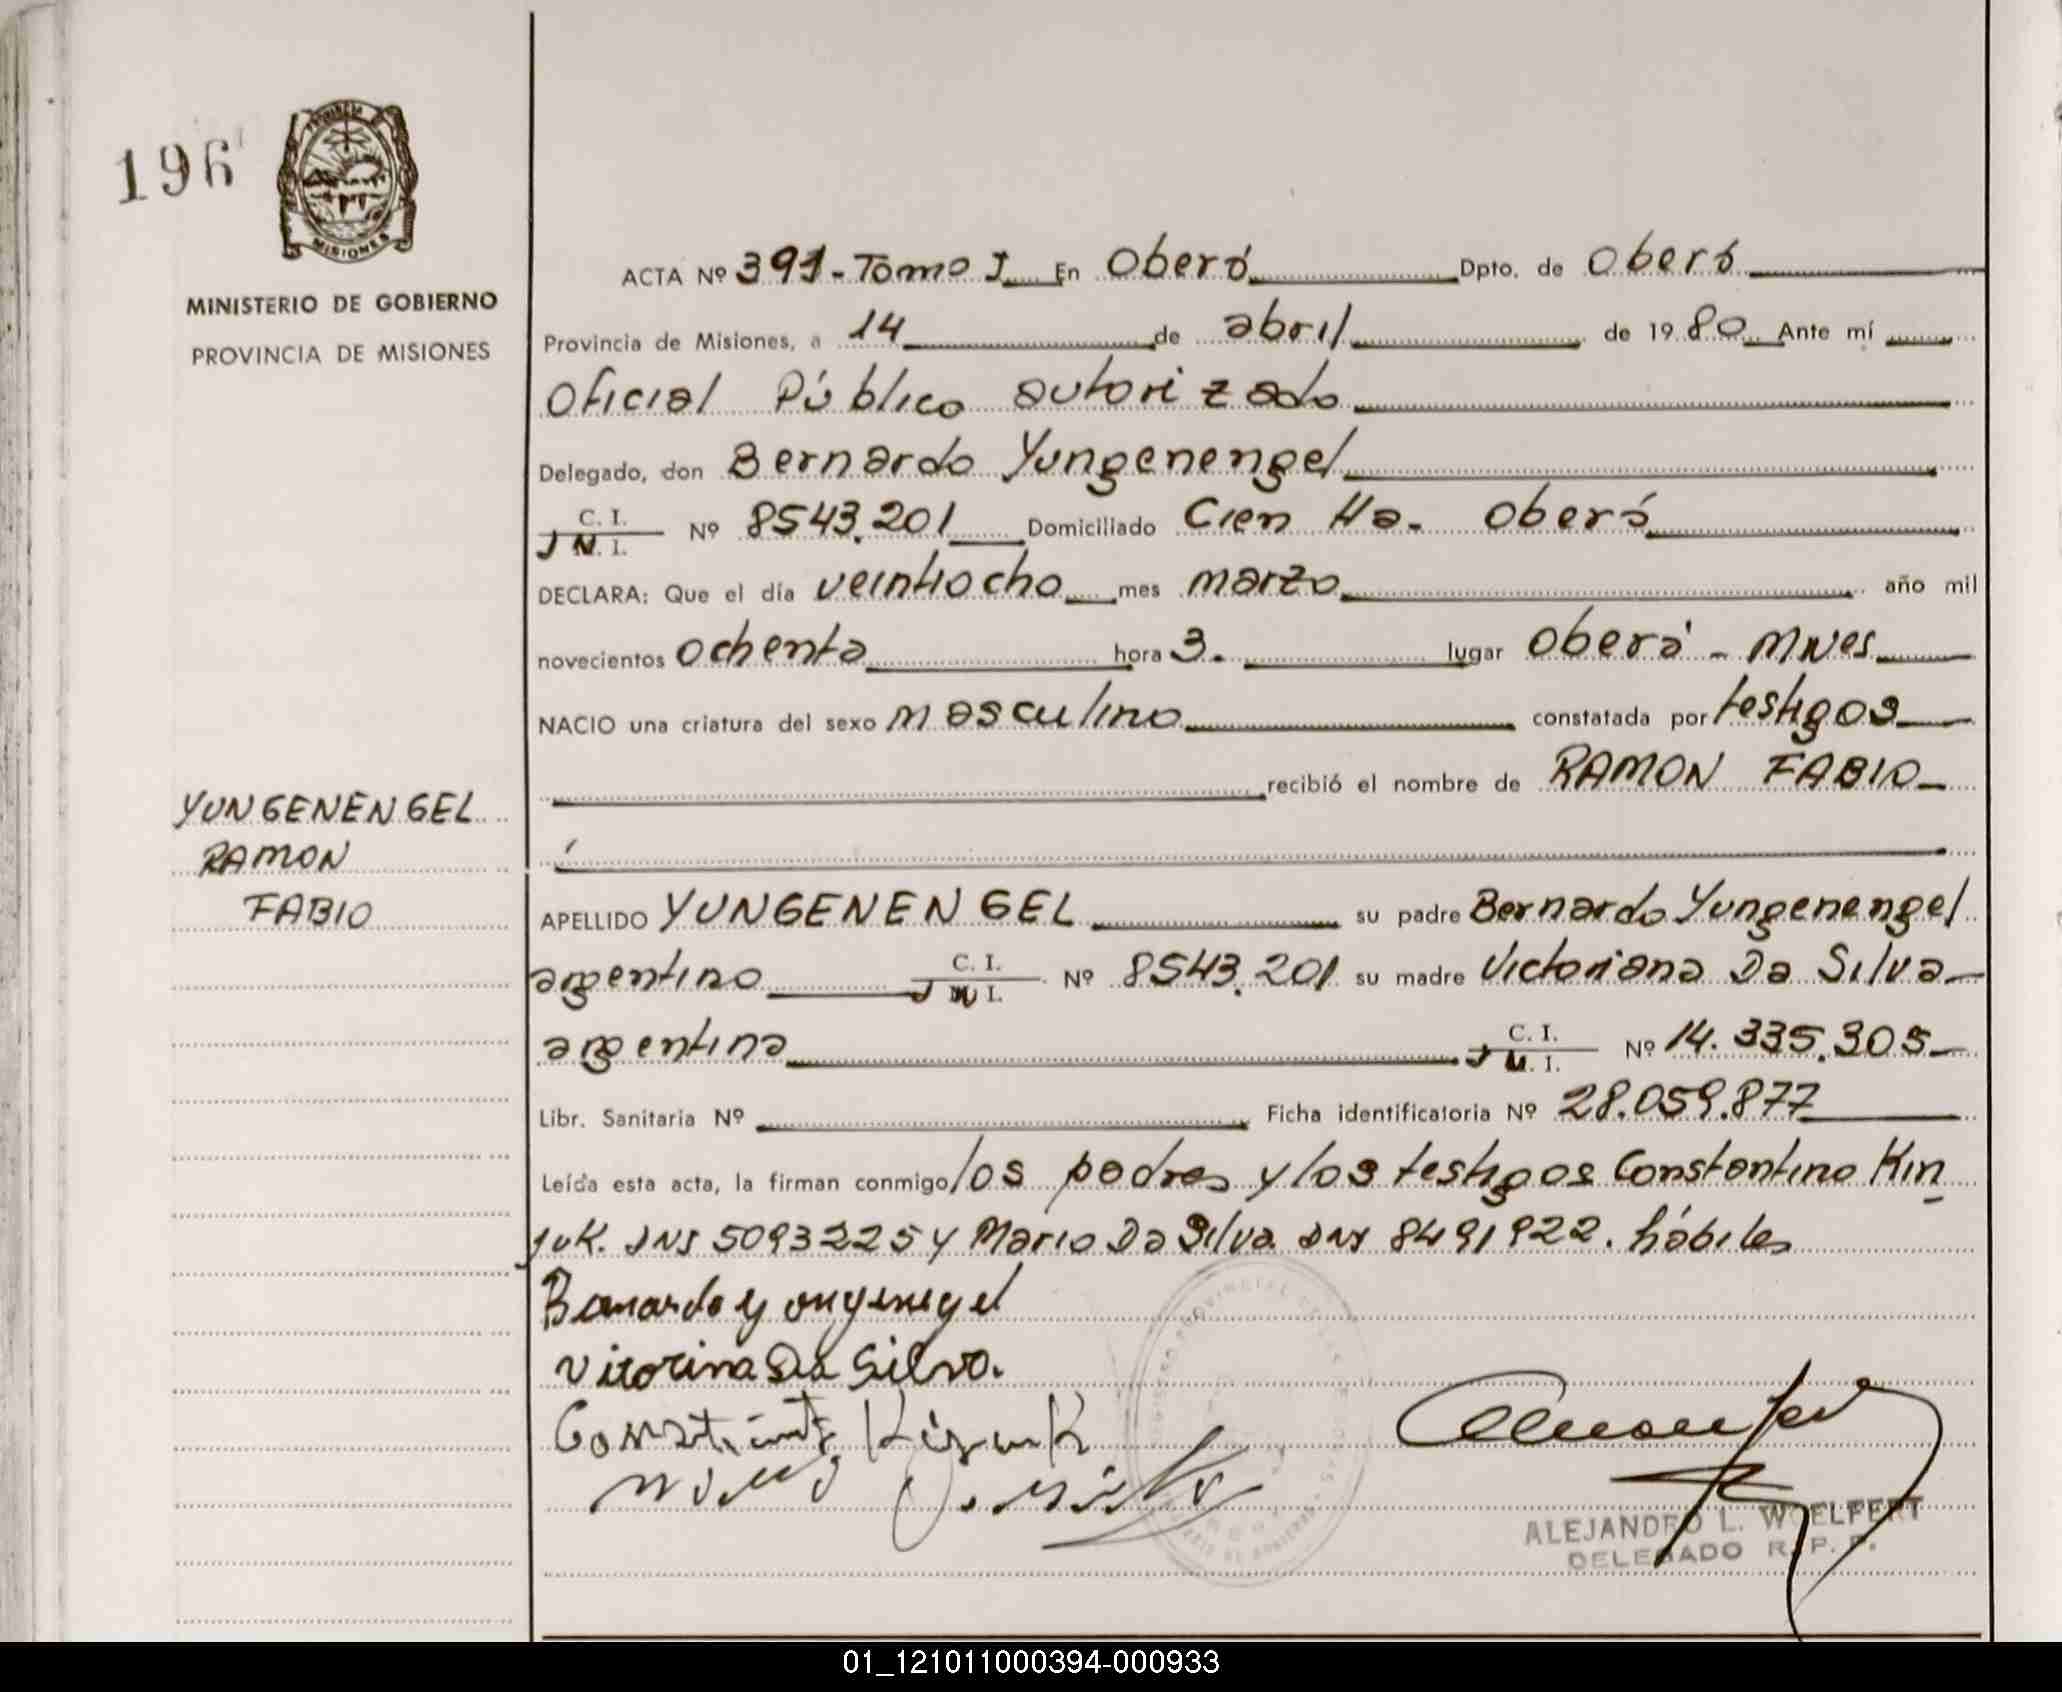 196
MISIONES
MINISTERIO DE GOBIERNO
PROVINCIA DE MISIONES
ACTA Nº 391-Tomo I En Oberá Dpto. de Oberá
Provincia de Misiones, a 14 de abril de 1980 Ante mí
Oficial Público autorizado
Delegado, don Bernardo Yungenengel
C. I.
Nº 8543.201 Domiciliado Cien Ha. Oberá
N. I.
DECLARA: Que el día veintiocho mes marzo año mil
novecientos ochenta hora 3. lugar Oberá - Mnes
NACIO una criatura del sexo masculino constatada por testigos
recibió el nombre de RAMON FABIO
YUNGENENGEL
RAMON
FABIO
APELLIDO YUNGENENGEL su padre Bernardo Yungenengel
argentino C. I. Nº 8543.201 su madre Victoriana Da Silva
argentina C. I. Nº 14.335.305
Libr. Sanitaria Nº Ficha identificatoria Nº 28.059.877
Leída esta acta, la firman conmigo los padres y los testigos Constantino Kin
juk. DNI 5093225 y Mario Da Silva DNI 8491922. hábiles
Vitorina Da Silva.
ALEJANDRO L. WOELFERT
DELEGADO R. P. P.
01_121011000394-000933